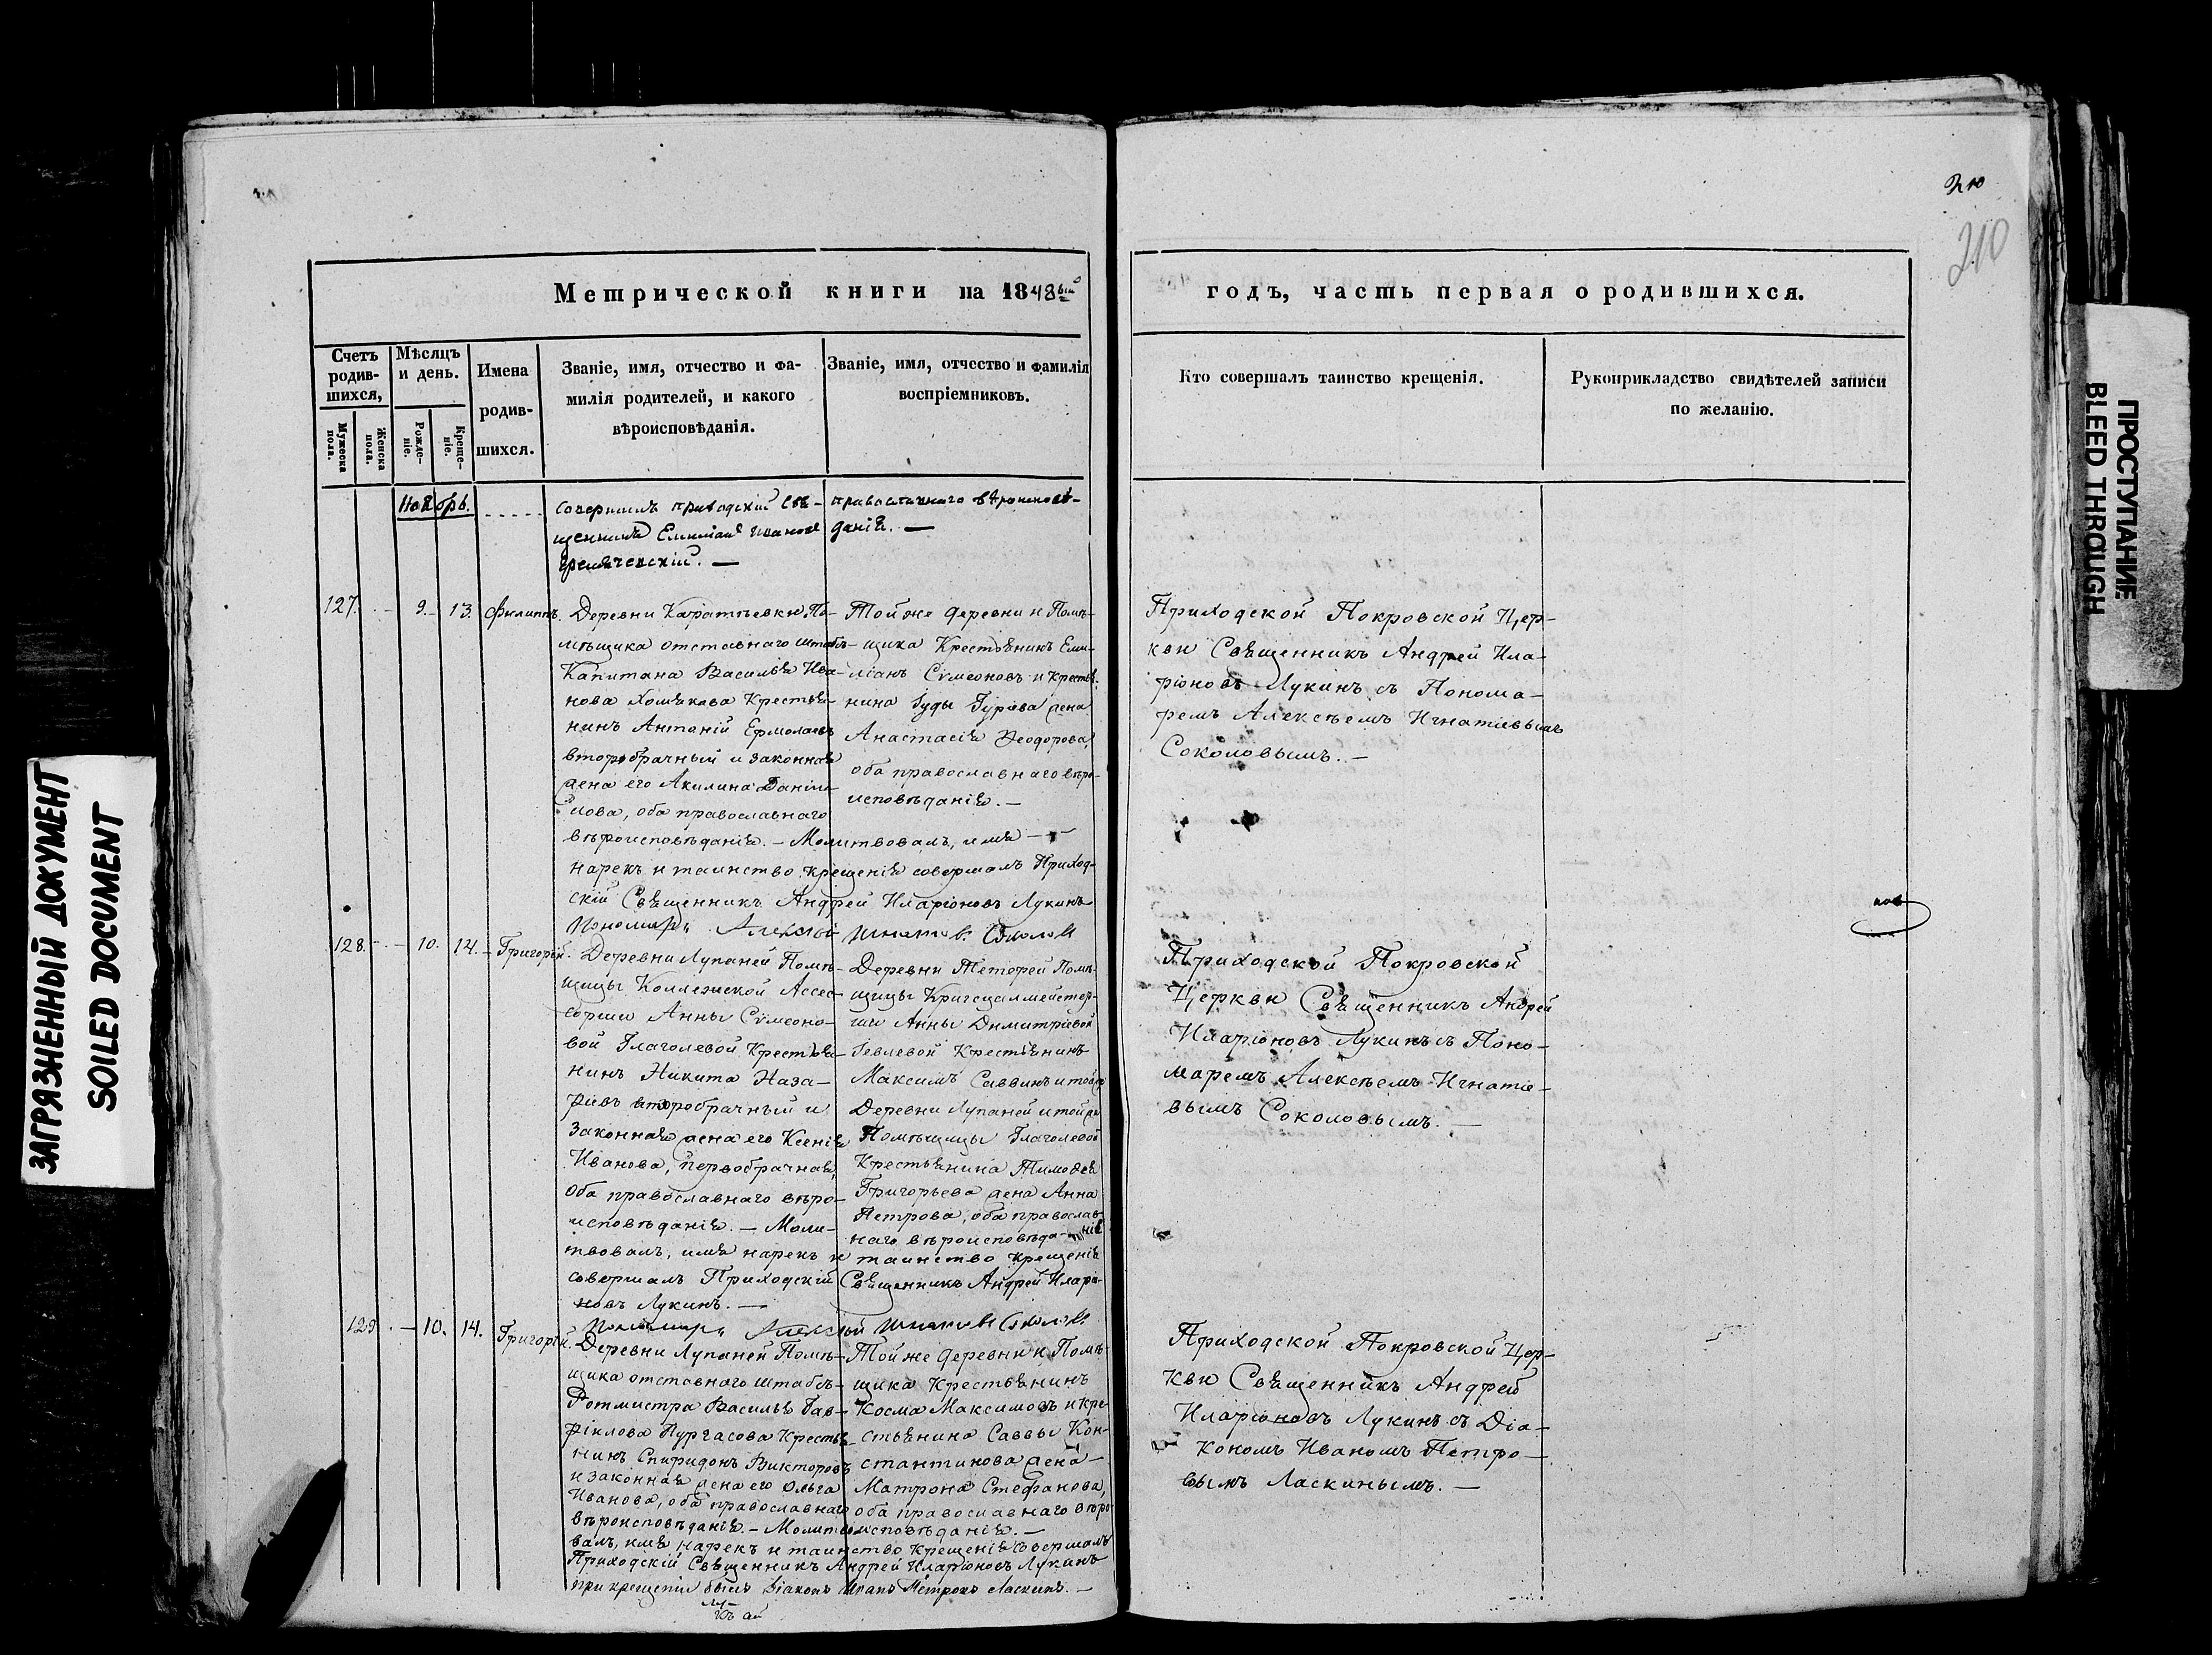 210
210
Метрической книги на 1848ый
годъ, часть первая о родившихся.
Счетъ родив-шихся,
Мужеска пола.
Женска пола.
Мѣсяцъ и день.
Рожде-ніе.
Креще-ніе.
Имена
родив-
шихся.
Званіе, имя, отчество и фа-
милія родителей, и какого
вѣроисповѣданія.
Званіе, имя, отчество и фамилія
воспріемниковъ.
Кто совершалъ таинство крещенія.
Рукоприкладство свидѣтелей записи
по желанію.
Ноябрь.
совершилъ приходскій свя-
щенникъ Емиліанъ Ивановъ
православнаго вѣроисповѣ-
данія. —
127. 9. 13. Филиппъ.
Деревни Каратѣевки По-
мѣщика отставнаго штабсъ-
Капитана Василья Ива-
нова Хомякова Крестья-
нинъ Антоній Ермолаевъ
второбрачный и законная
жена его Акилина Даніи-
лова, оба православнаго
вѣроисповѣданія. — Молитвовалъ, имя —
нарекъ и таинство крещенія совершалъ Приход-
скій Священникъ Андрей Иларіоновъ Лукинъ
Пономарь Алексѣй Игнатов. Соколовъ
Той же деревни и Помѣ-
щика Крестьянинъ Еми-
ліанъ Сѵмеоновъ и крестья-
нина Іуды Гурова жена
Анастасія Ѳеодорова,
оба православнаго вѣро-
исповѣданія. —
Приходской Покровской Цер-
кви Священникъ Андрей Ила-
ріоновъ Лукинъ съ Понома-
ремъ Алексѣемъ Игнатіевымъ
Соколовымъ. —
128. 10. 14. Григорій.
Деревни Лупаней Помѣ-
щицы Коллежской Ассес-
сорши Анны Сѵмеоно-
вой Глаголевой Крестья-
нинъ Никита Наза-
рьевъ второбрачный и
законная жена его Ксенія
Иванова, первобрачная,
оба православнаго вѣро-
исповѣданія. — Моли-
твовалъ, имя нарекъ и таинство крещенія
совершалъ Приходскій Священникъ Андрей Иларіо-
новъ Лукинъ. —
Пономарь Алексѣй Игнатовъ Соколовъ
Деревни Тетерей Помѣ-
щицы Кригсцалмейстер-
ши Анны Димитріевой
Крестьянинъ
Максимъ Саввинъ и той же
Деревни Лупаней и той же
Помѣщицы Глаголевой
Крестьянина Тимоѳея
Григорьева жена Анна
Петрова, оба православ-
наго вѣроисповѣда-нія
Приходской Покровской
Церкви Священникъ Андрей
Иларіоновъ Лукинъ съ Поно-
маремъ Алексѣемъ Игнатіе-
вымъ Соколовымъ. —
129. 10. 14. Григорій.
Деревни Лупаней Помѣ-
щика отставнаго штабсъ-
Ротмистра Василья Гав-
ріилова Пургасова Крестья-
нинъ Спиридонъ Викторовъ
и законная жена его Ольга
Иванова, оба православнаго
вѣроисповѣданія. — Молитво-
валъ, имя нарекъ и таинство крещенія совершалъ
Приходскій Священникъ Андрей Иларіоновъ Лукинъ
при крещеніи былъ Діаконъ Иванъ Петровъ Ласкинъ. —
Той же деревни и Помѣ-
щика Крестьянинъ
Косма Максимовъ и кре-
стьянина Саввы Кон-
стантинова жена —
Матрона Стефанова,
оба православнаго вѣро-
исповѣданія. —
Приходской Покровской Цер-
кви Священникъ Андрей
Иларіоновъ Лукинъ съ Діа-
кономъ Иваномъ Петро-
вымъ Ласкинымъ. —
ЗАГРЯЗНЕННЫЙ ДОКУМЕНТ
SOILED DOCUMENT
ПРОСТУПАНИЕ
BLEED THROUGH